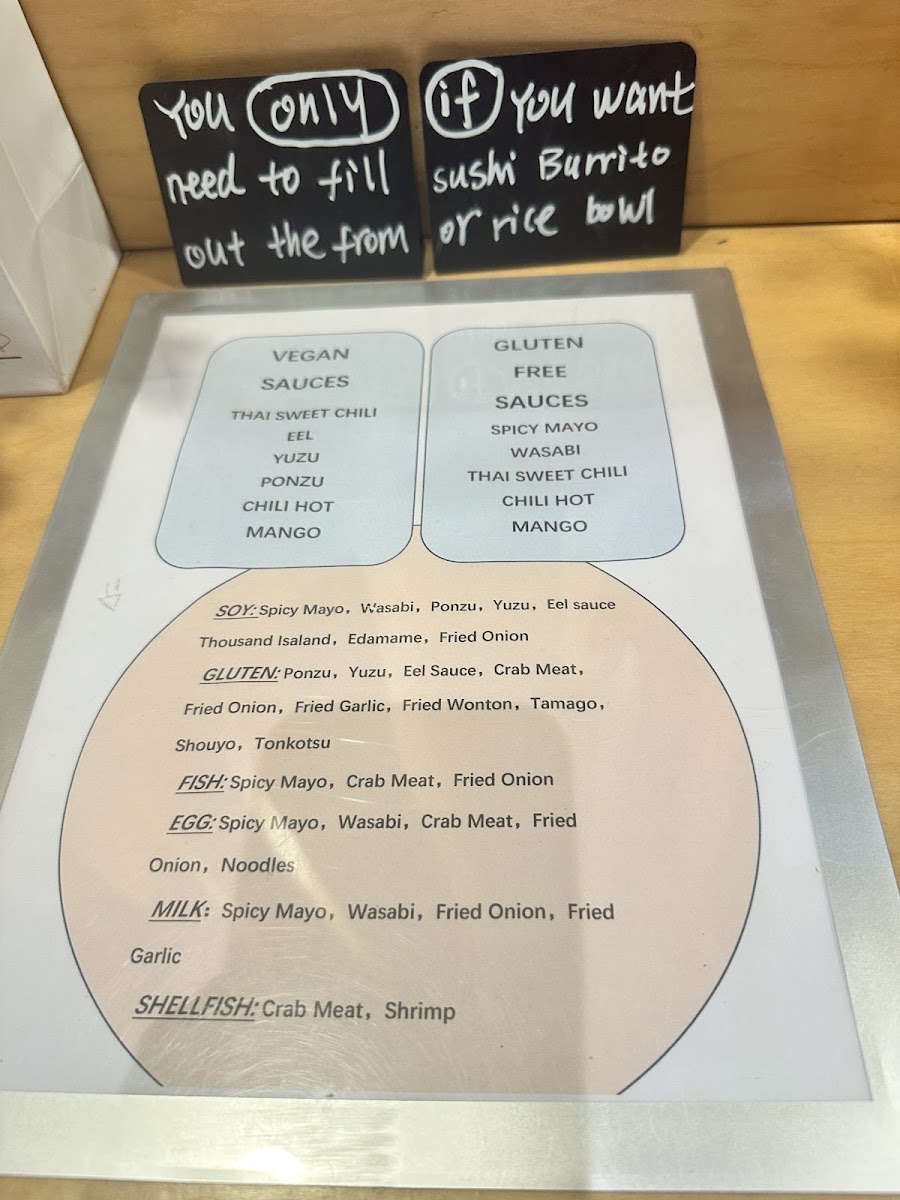 You only
need to fill
out the from
if you want
sushi Burrito
or rice bowl
VEGAN
SAUCES
THAI SWEET CHILI
EEL
YUZU
PONZU
CHILI HOT
MANGO
GLUTEN
FREE
SAUCES
SPICY MAYO
WASABI
THAI SWEET CHILI
CHILI HOT
MANGO
SOY: Spicy Mayo, Wasabi, Ponzu, Yuzu, Eel sauce
Thousand Isaland, Edamame, Fried Onion
GLUTEN: Ponzu, Yuzu, Eel Sauce, Crab Meat,
Fried Onion, Fried Garlic, Fried Wonton, Tamago,
Shouyo, Tonkotsu
FISH: Spicy Mayo, Crab Meat, Fried Onion
EGG: Spicy Mayo, Wasabi, Crab Meat, Fried
Onion, Noodles
MILK: Spicy Mayo, Wasabi, Fried Onion, Fried
Garlic
SHELLFISH: Crab Meat, Shrimp